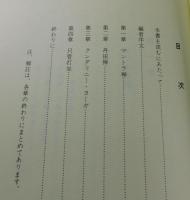 目次
本書を読むにあたって
編者序文
第一章 マントラ禅
第二章 丹田禅
第三章 クンダリニー・ヨーガ
第四章 只管打坐
終わりに
注、解註は、各章の終わりにまとめてあります。